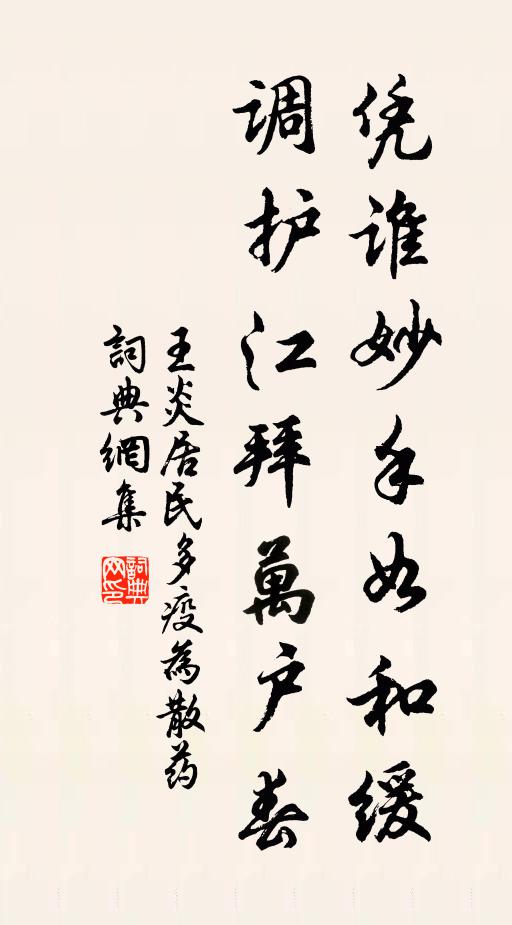 凭谁妙手如和缓
调护江拜萬户春
王炎居民多疫為散药
詞典網集
詞典网印